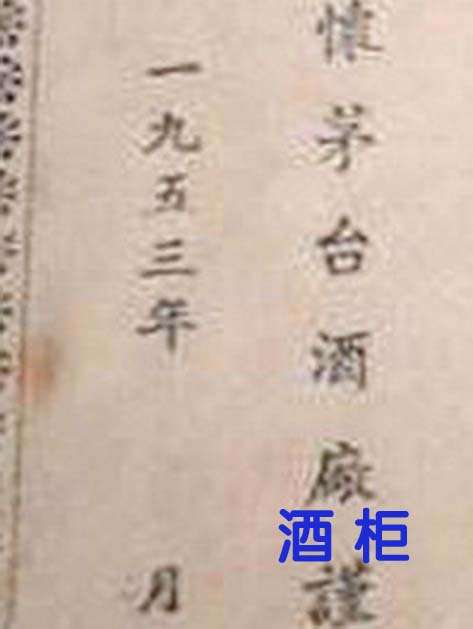 懷茅台酒廠謹
一九五三年 月
酒柜